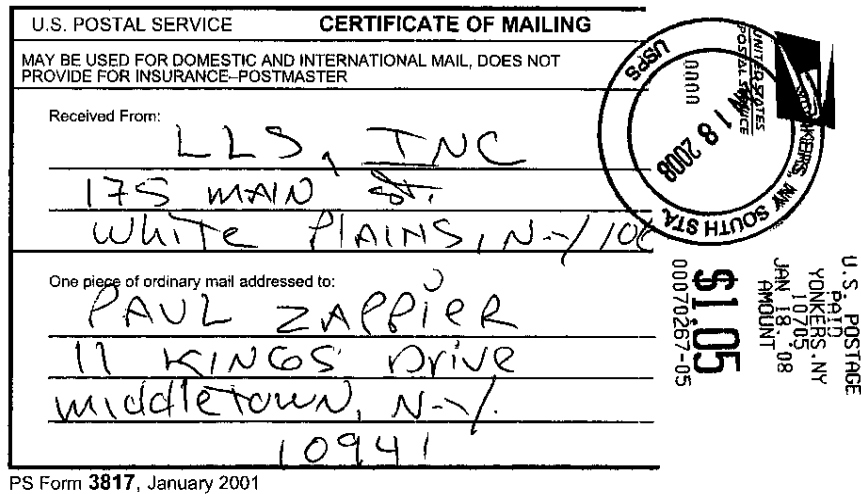 U.S. POSTAL SERVICE CERTIFICATE OF MAILING
MAY BE USED FOR DOMESTIC AND INTERNATIONAL MAIL, DOES NOT
PROVIDE FOR INSURANCE–POSTMASTER
Received From:
LLS, INC
175 MAIN St.
White PLAINS, N-Y 10
One piece of ordinary mail addressed to:
PAUL ZAPPIER
11 KINGS Drive
Middletown, N-Y.
10941
PS Form 3817, January 2001
UNITED STATES
POSTAL SERVICE
0000
USPS
18 2008
YONKERS, NY SOUTH STA.
U.S. POSTAGE
PAID
YONKERS.NY
10705
JAN 18.'08
AMOUNT
$1.05
00070267-05